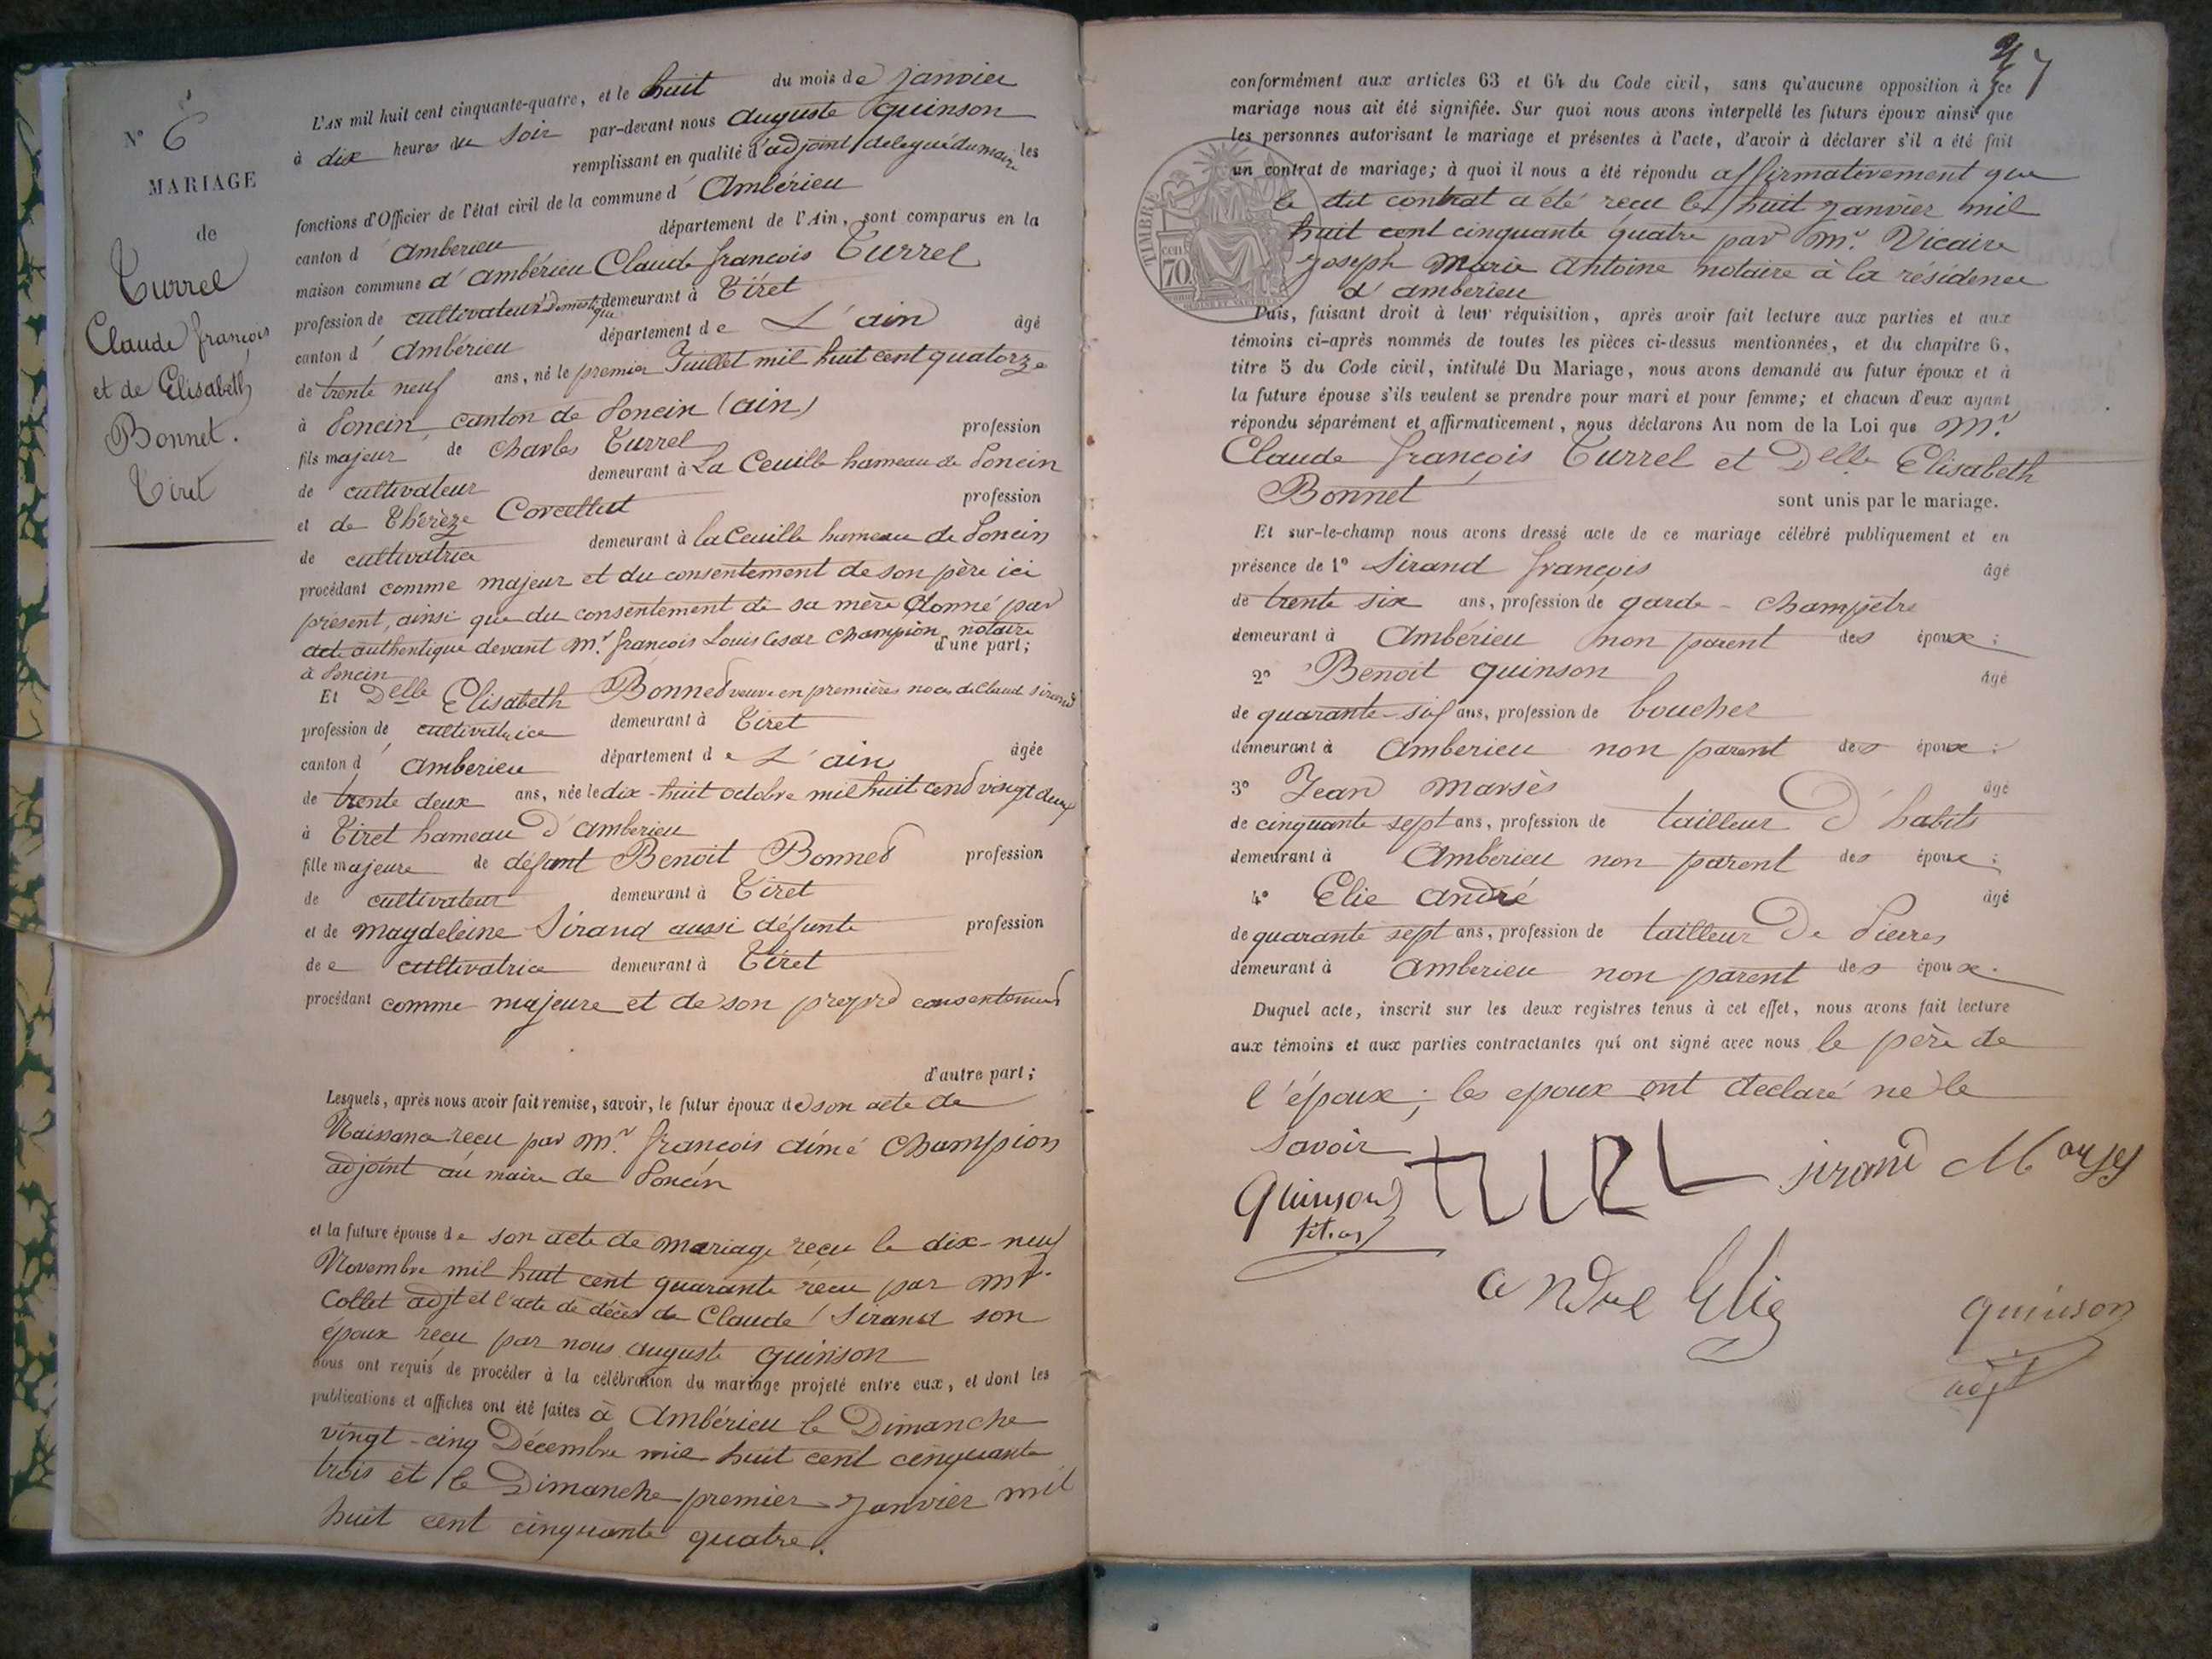 N° 6
MARIAGE
de
Turrel
Claude françois
et de Elisabeth
Bonnet.
Tiret
L'AN mil huit cent cinquante-quatre, et le huit du mois de janvier
à dix heures du soir par-devant nous auguste quinson
remplissant en qualité d'adjoint délégué du maire les
fonctions d'Officier de l'état civil de la commune d' Ambérieu
canton d' Amberieu département de l'Ain, sont comparus en la
maison commune d' ambérieu Claude françois Turrel
profession de cultivateur domestique demeurant à Tiret
canton d' Ambérieu département de L'ain âgé
de trente neuf ans, né le premier Juillet mil huit cent quatorze
à Poncin canton de Poncin (ain)
fils majeur de Charles Turrel profession
de cultivateur demeurant à La Ceuille hameau de Poncin
et de Thérèze Corcellut profession
de cultivatrice demeurant à la Ceuille hameau de Poncin
procédant comme majeur et du consentement de son père ici
présent, ainsi que du consentement de sa mère donné par
acte authentique devant Mr. françois Louis César Champion notaire
à Poncin d'une part;
Et Delle Elisabeth Bonned veuve en premières noces de Claud Sirand
profession de cultivatrice demeurant à Tiret
canton d' amberieu département de L'ain âgée
de trente deux ans, née le dix-huit octobre mil huit cend vingt deux
à Tiret hameau d'amberieu
fille majeure de défunt Benoit Bonned profession
de cultivateur demeurant à Tiret
et de magdeleine Sirand aussi défunte profession
de e cultivatrice demeurant à Tiret
procédant comme majeure et de son propre consentement
d'autre part;
Lesquels, après nous avoir fait remise, savoir, le futur époux de son acte de
Naissance reçu par Mr. françois aimé Champion
adjoint au maire de Poncin
et la future épouse de son acte de mariage reçu le dix-neuf
Novembre mil huit cent quarante reçu par Mr.
Collet adjt et l'acte de décès de Claude Sirand son
époux reçu par nous auguste quinson
nous ont requis de procéder à la célébration du mariage projeté entre eux, et dont les
publications et affiches ont été faites à Ambérieu le Dimanche
vingt-cinq Décembre mil huit cent cinquante
trois et le Dimanche premier Janvier mil
huit cent cinquante quatre.
7
conformément aux articles 63 et 64 du Code civil, sans qu'aucune opposition à ce
mariage nous ait été signifiée. Sur quoi nous avons interpellé les futurs époux ainsi que
les personnes autorisant le mariage et présentes à l'acte, d'avoir à déclarer s'il a été fait
un contrat de mariage; à quoi il nous a été répondu affirmativement que
le dit contrat a été reçu le huit janvier mil
huit cent cinquante quatre par Mr. Vicaire
joseph Marie Antoine notaire à la résidence
d'amberieu
TIMBRE
70
Puis, faisant droit à leur réquisition, après avoir fait lecture aux parties et aux
témoins ci-après nommés de toutes les pièces ci-dessus mentionnées, et du chapitre 6,
titre 5 du Code civil, intitulé Du Mariage, nous avons demandé au futur époux et à
la future épouse s'ils veulent se prendre pour mari et pour femme; et chacun d'eux ayant
répondu séparément et affirmativement, nous déclarons Au nom de la Loi que Mr.
Claude françois Turrel et Delle Elisabeth
Bonnet sont unis par le mariage.
Et sur-le-champ nous avons dressé acte de ce mariage célébré publiquement et en
présence de 1° Sirand françois âgé
de trente six ans, profession de garde-champêtre
demeurant à Ambérieu non parent des époux;
2° Benoit quinson âgé
de quarante-six ans, profession de boucher
demeurant à amberieu non parent des époux;
3° Jean marsès âgé
de cinquante sept ans, profession de tailleur d'habits
demeurant à Ambérieu non parent des époux;
4° Elie andré âgé
de quarante sept ans, profession de tailleur De Pierres
demeurant à Amberieu non parent des époux.
Duquel acte, inscrit sur les deux registres tenus à cet effet, nous avons fait lecture
aux témoins et aux parties contractantes qui ont signé avec nous le père de
l'époux; les epoux ont declaré ne le
savoir
quinson
sirand
andre Elie
quinson
adjt